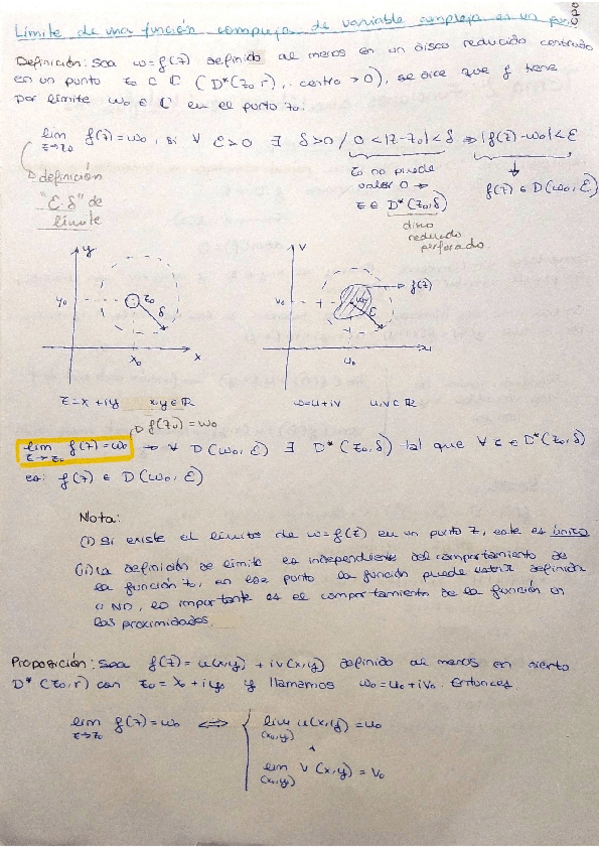 Límite de una función compleja de variable compleja en un pun
Definición: Sea w=f(z) definido al menos en un disco reducido centrado
en un punto z₀ ∈ ℂ (D*(z₀, r), centro > 0), se dice que f tiene
por límite w₀ ∈ ℂ en el punto z₀.
lim f(z) = w₀, si ∀ ε>0 ∃ δ>0 / 0<|z-z₀|<δ ⇒ |f(z)-w₀|<ε
z→z₀
definición
"ε-δ" de
límite
z₀ no puede
valer 0 →
z ∈ D*(z₀, δ)
disco
reducido
perforado
f(z) ∈ D(w₀, ε)
y
y₀
z₀
δ
x₀
x
v
v₀
w₀
f(z)
ε
u₀
u
z=x+iy x,y∈ℝ
w=u+iv u,v∈ℝ
f(z₀)=w₀
lim f(z)=w₀ → ∀ D(w₀, ε) ∃ D*(z₀, δ) tal que ∀ z ∈ D*(z₀, δ)
z→z₀
es: f(z) ∈ D(w₀, ε)
Nota:
(i) Si existe el límite de w=f(z) en un punto z, este es único
(ii) La definición de límite es independiente del comportamiento de
la función z₀, en ese punto la función puede estar definida
o NO, lo importante es el comportamiento de la función en
las proximidades.
Proposición: Sea f(z)=u(x,y)+iv(x,y) definido al menos en cierto
D*(z₀, r) con z₀=x₀+iy₀ y llamamos w₀=u₀+iv₀. Entonces
lim f(z)=w₀ ⇔ { lim u(x,y)=u₀
z→z₀ (x₀,y₀)
lim v(x,y)=v₀
(x₀,y₀)